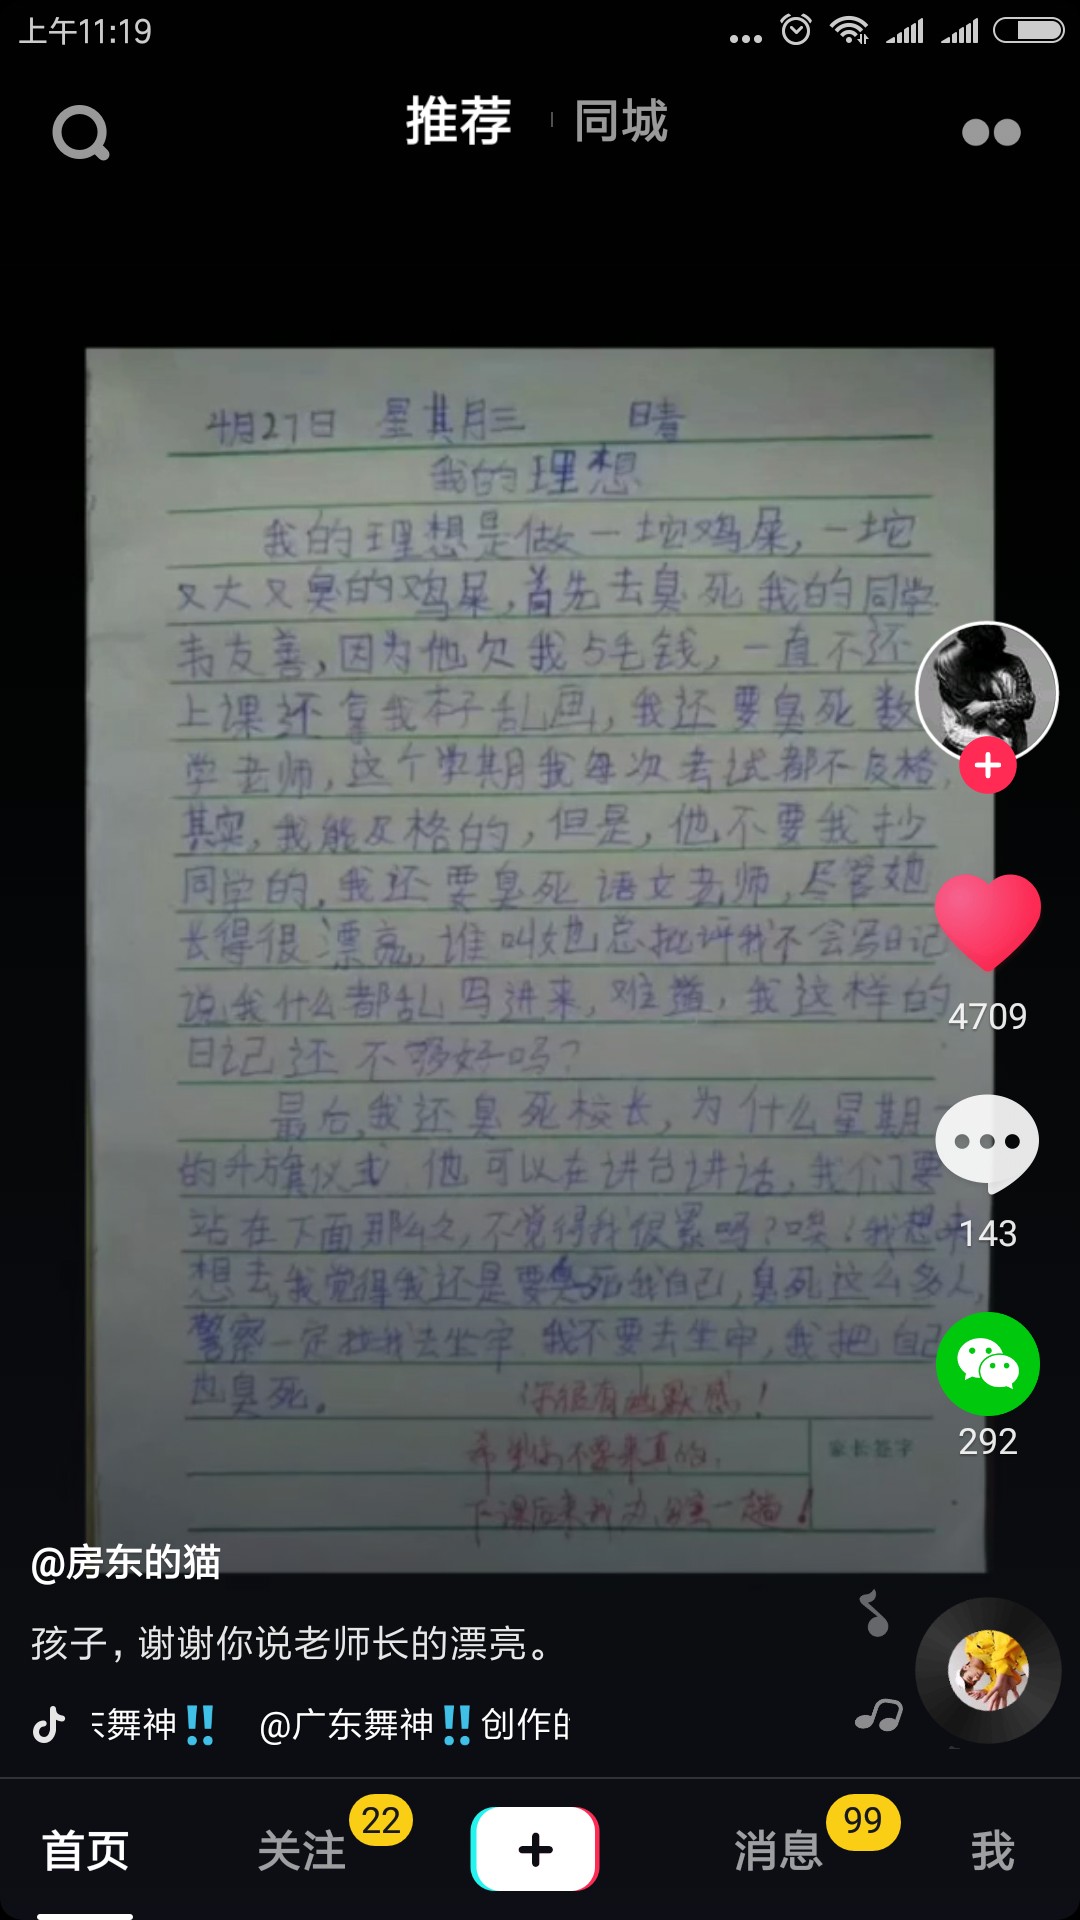 上午11:19
推荐
同城
4月27日 星其月三 晴
我的理想
我的理想是做一坨鸡屎,一坨
又大又臭的鸡屎,首先去臭死我的同学
韦友善,因为他欠我5毛钱,一直不还
上课还拿我本子乱画,我还要臭死数
学老师,这个学期我每次考试都不及格,
其实,我能及格的,但是,他不要我抄
同学的,我还要臭死语文老师,尽管她
长得很漂亮,谁叫她总批评我不会写日记
说我什么都乱写进来,难道,我这样的
日记还不够好吗?
最后,我还臭死校长,为什么星期一
的升旗仪式 他可以在讲台讲话,我们要
站在下面那么久,不觉得我很累吗?唉!我想来
想去,我觉得我还是要臭死我自己,臭死这么多人,
警察一定拉我去坐牢 我不要去坐牢,我把自己
也臭死。
你很有幽默感!
希望你不要来真的,
家长签字
下课后来我办公室一趟!
4709
143
292
@房东的猫
孩子,谢谢你说老师长的漂亮。
舞神‼ @广东舞神‼创作的
首页
关注
22
消息
99
我